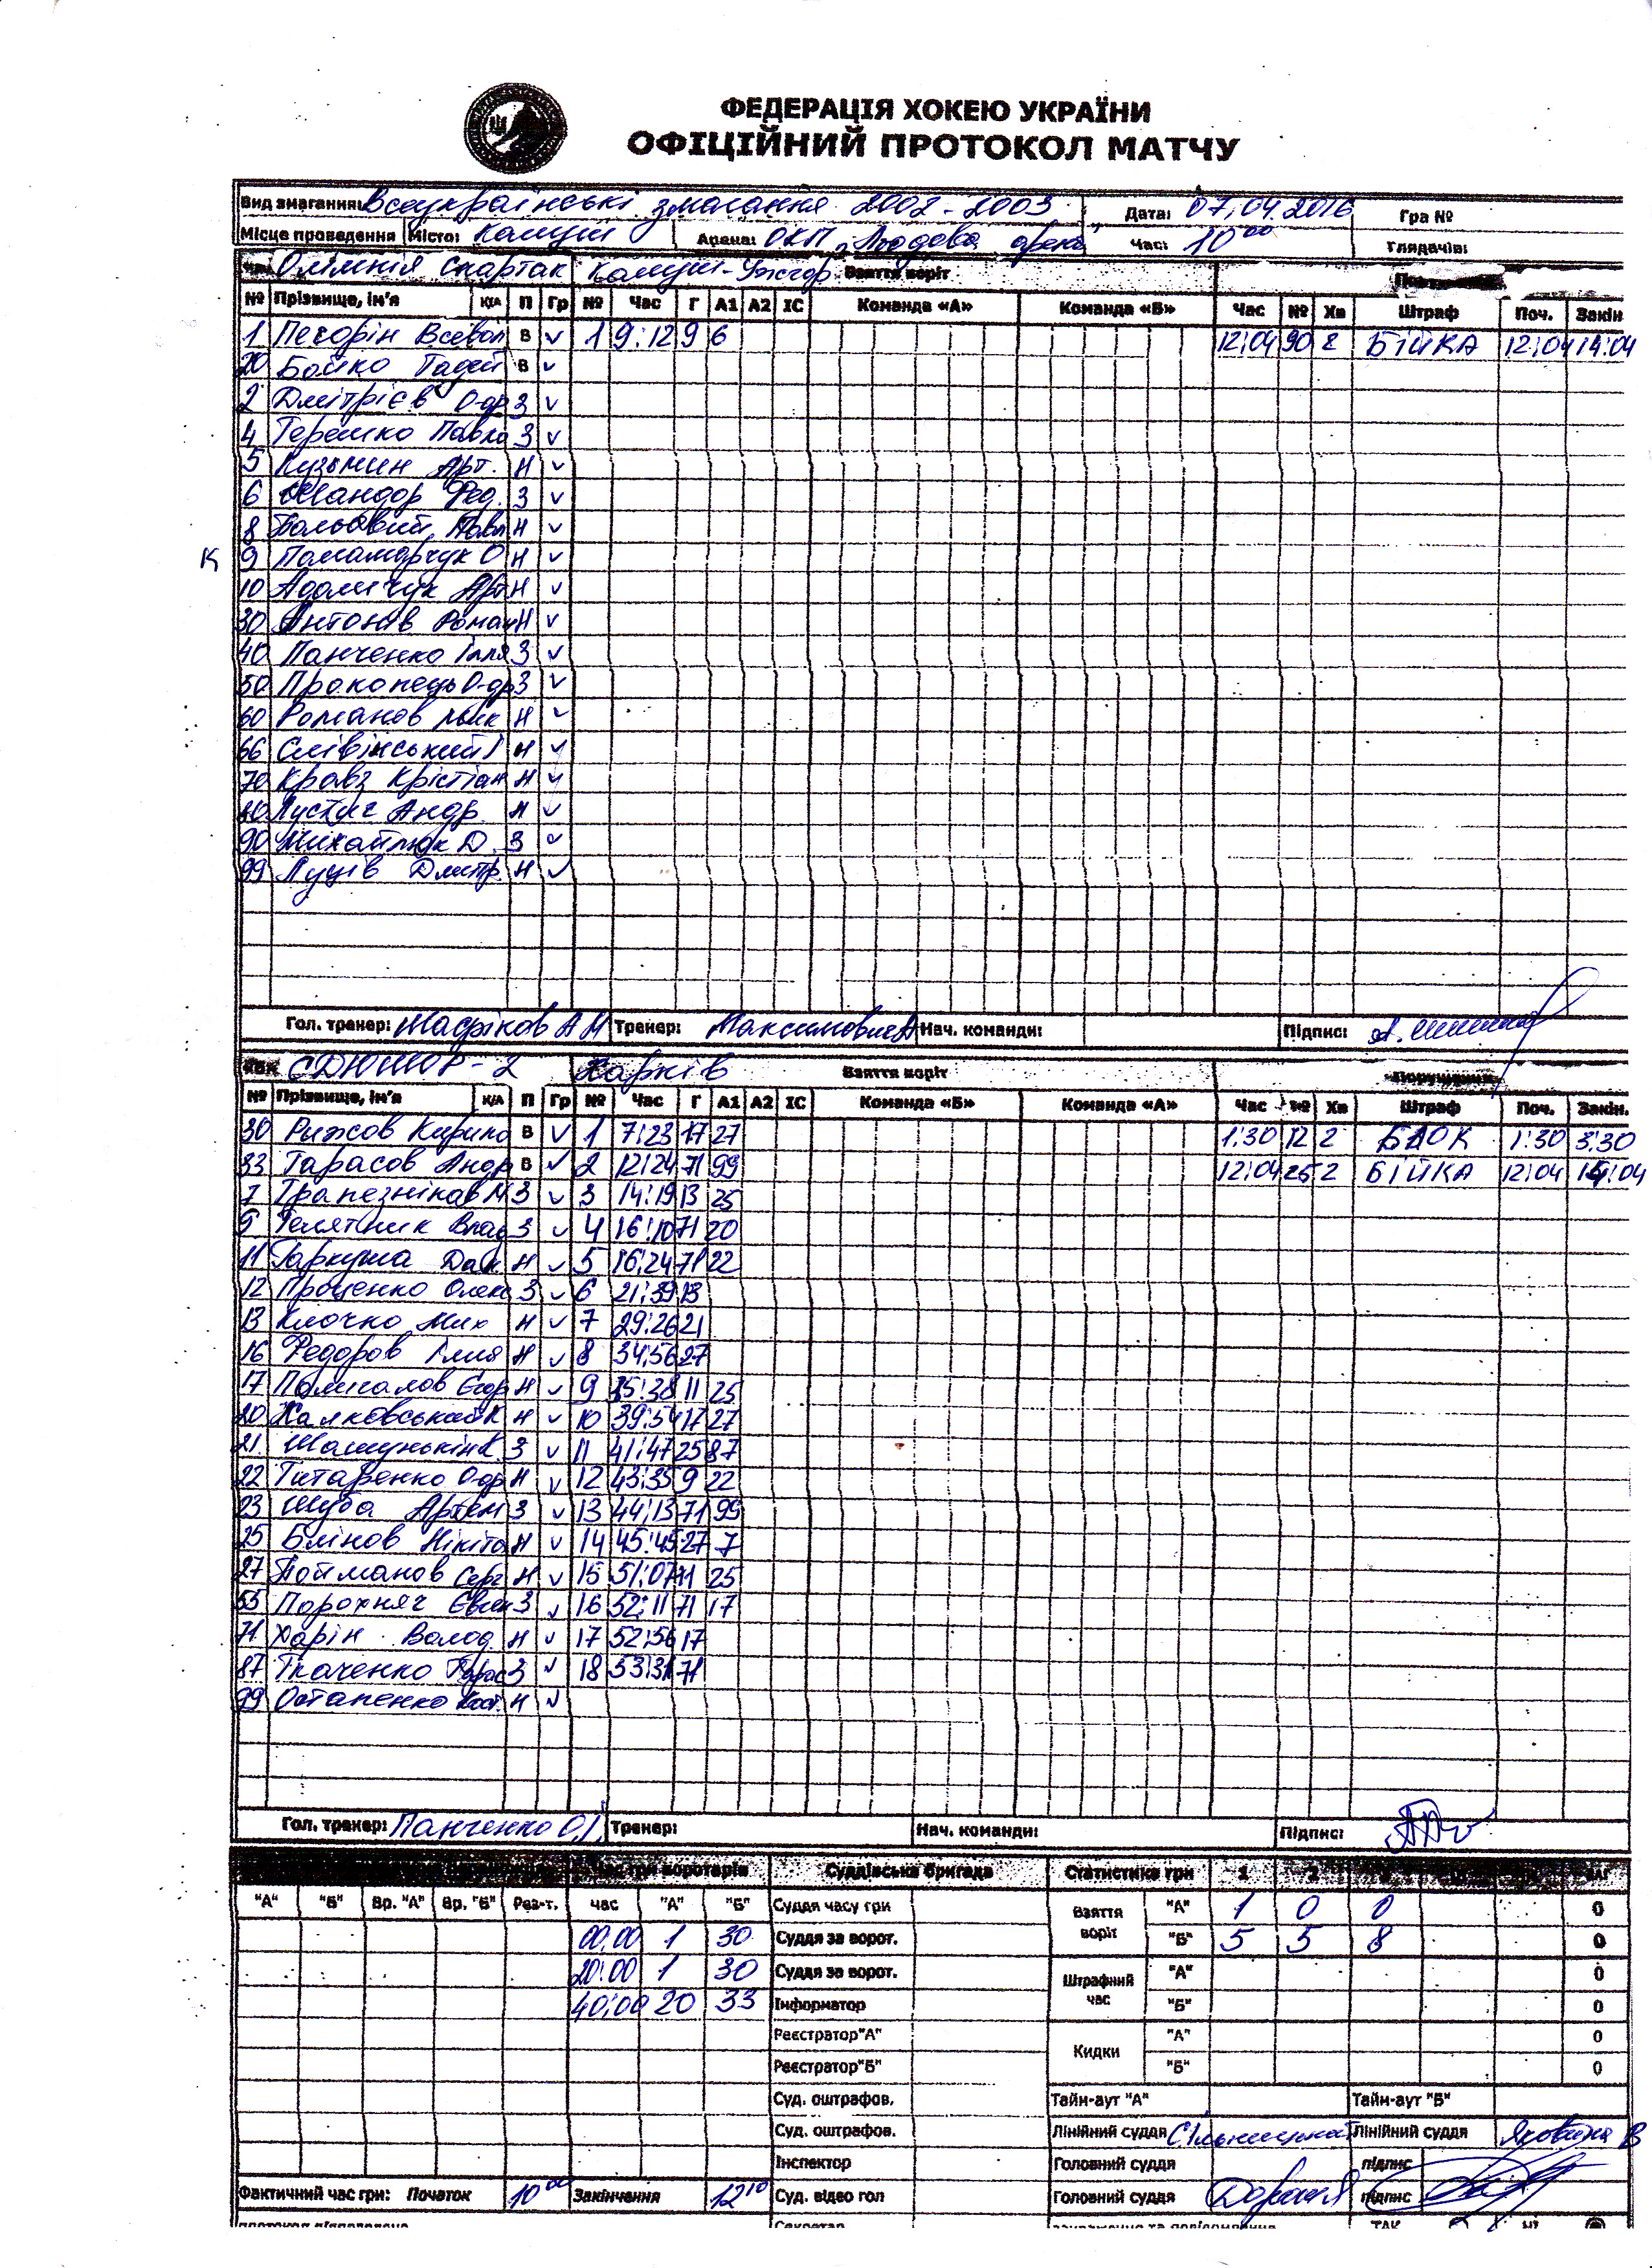 ФЕДЕРАЦІЯ ХОКЕЮ УКРАЇНИ
ОФІЦІЙНИЙ ПРОТОКОЛ МАТЧУ
Вид змагання: Всеукраїнські змагання 2002-2003 Дата: 07.04.2016 Гра №
Місце проведення Місто: Калуш Арена: ОКП "Льодова арена" Час: 10 00 Глядачів:
Олімпія Спартак Калуш-Ужгор Взяття воріт
№ Прізвище, ім'я К/А П Гр № Час Г А1 А2 ІС Команда «А» Команда «Б» Час № Хв Штраф Поч. Закін
1 Печорін Всевол В v 1 9:12 9 6 12:04 90 2 БІЙКА 12:04 14:04
20 Бойко Тадей В v
2 Дмітрієв О-др З v
4 Терешко Павло З v
5 Кузьмин Арт. Н v
6 Шандор Фед. З v
8 Павл Н v
К 9 Паламарчук О Н v
10 Адамчук Арт Н v
30 Антонів Роман Н v
40 Панченко Ілля З v
50 Прокопець О-др З v
60 Романов Мик Н v
66 Слівінський І Н v
70 Кравз Крістіан Н v
80 Лустиг Андр. Н v
90 Михайлюк Д. З v
99 Луців Дмитр. Н v
Гол. тренер: А М Тренер: Максимович А Нач. команди: Підпис:
СДЮШОР-2 Харків Взяття воріт
№ Прізвище, ім'я К/А П Гр № Час Г А1 А2 ІС Команда «Б» Команда «А» Час № Хв Штраф Поч. Закін.
30 Рижов Кирило В v 1 7:23 17 27 1:30 12 2 БЛОК 1:30 3:30
33 Тарасов Андр В v 2 12:24 71 99 12:04 25 2 БІЙКА 12:04 14:04
7 Трапезніков М З v 3 14:19 13 25
9 Телятник Влад З v 4 16:10 71 20
11 Гаркуша Дан. Н v 5 16:24 71 22
12 Проценко Олекс З v 6 21:39 13
13 Клочко Мих Н v 7 29:26 21
16 Федоров Ілля Н v 8 34:56 27
17 Полигалов Єгор Н v 9 35:38 11 25
20 Халковський К Н v 10 39:54 17 27
21 Шашунькін К. З v 11 41:47 25 87
22 Титаренко О-др Н v 12 43:35 9 22
23 Шуба Артем З v 13 44:13 71 99
25 Блінов Нікіта Н v 14 45:45 27 7
27 Пойманов Серг Н v 15 51:07 11 25
55 Порохняч Євген З v 16 52:11 71 17
71 Харін Волод. Н v 17 52:56 17
87 Ткаченко Тарас З v 18 53:31 71
99 Остапенко Кост. Н v
Гол. тренер: Панченко О.І. Тренер: Нач. команди: Підпис:
Час гри воротарів Суддівська бригада Статистика гри 1 2
"А" "Б" Вр. "А" Вр. "Б" Рез-т. час "А" "Б" Суддя часу гри Взяття воріт "А" 1 0 0 0
00:00 1 30 Суддя за ворот. "Б" 5 5 8 0
20:00 1 30 Суддя за ворот. Штрафний час "А" 0
40:00 20 33 Інформатор "Б" 0
Реєстратор"А" Кидки "А" 0
Реєстратор"Б" "Б" 0
Суд. оштрафов. Тайм-аут "А" Тайм-аут "Б"
Суд. оштрафов. Лінійний суддя Лінійний суддя
Інспектор Головний суддя підпис
Фактичний час гри: Початок 10 00 Закінчення 12 10 Суд. відео гол Головний суддя підпис
Секретар ТАК НІ